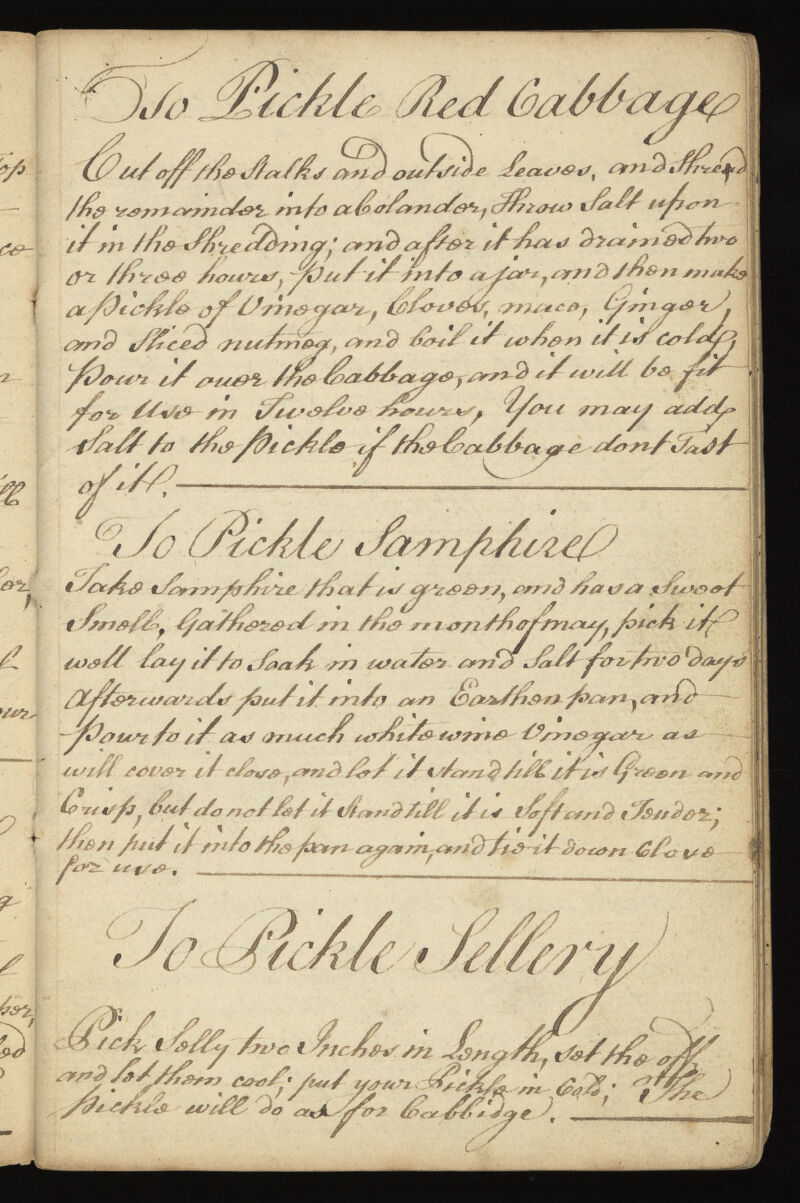 To Pickle Red Cabbage
Cut off the Stalks and outside Leaves, and Shred
the remainder into a Colander, Throw Salt upon
it in the Shredding; and after it has drained two
or three hours, put it into a jar, and then make
a Pickle of Vinegar, Cloves, mace, Ginger,
and Sliced nutmeg, and boil it when it is cold,
Pour it over the Cabbage, and it will be fit
for Use in Twelve hours, You may add
Salt to the Pickle if the Cabbage dont Tast
of it.
To Pickle Samphire
Take Samphire that is green, and has a Sweet
Smell, Gathered in the month of may, pick it
well lay it to Soak in water and Salt for two days
Afterwards put it into an Earthen pan, and
Pour to it as much white wine Vinegar as
will cover it close, and let it stand till it is Green and
Crisp, but do not let it Stand till it is Soft and Tender;
then put it into the pan again, and tie it down Close
for use.
To Pickle Sellery
Pick Selly two Inches in Length, set the off
and let them cool; put your Pickle in Cold; The
Pickle will do as for Cabbidge.